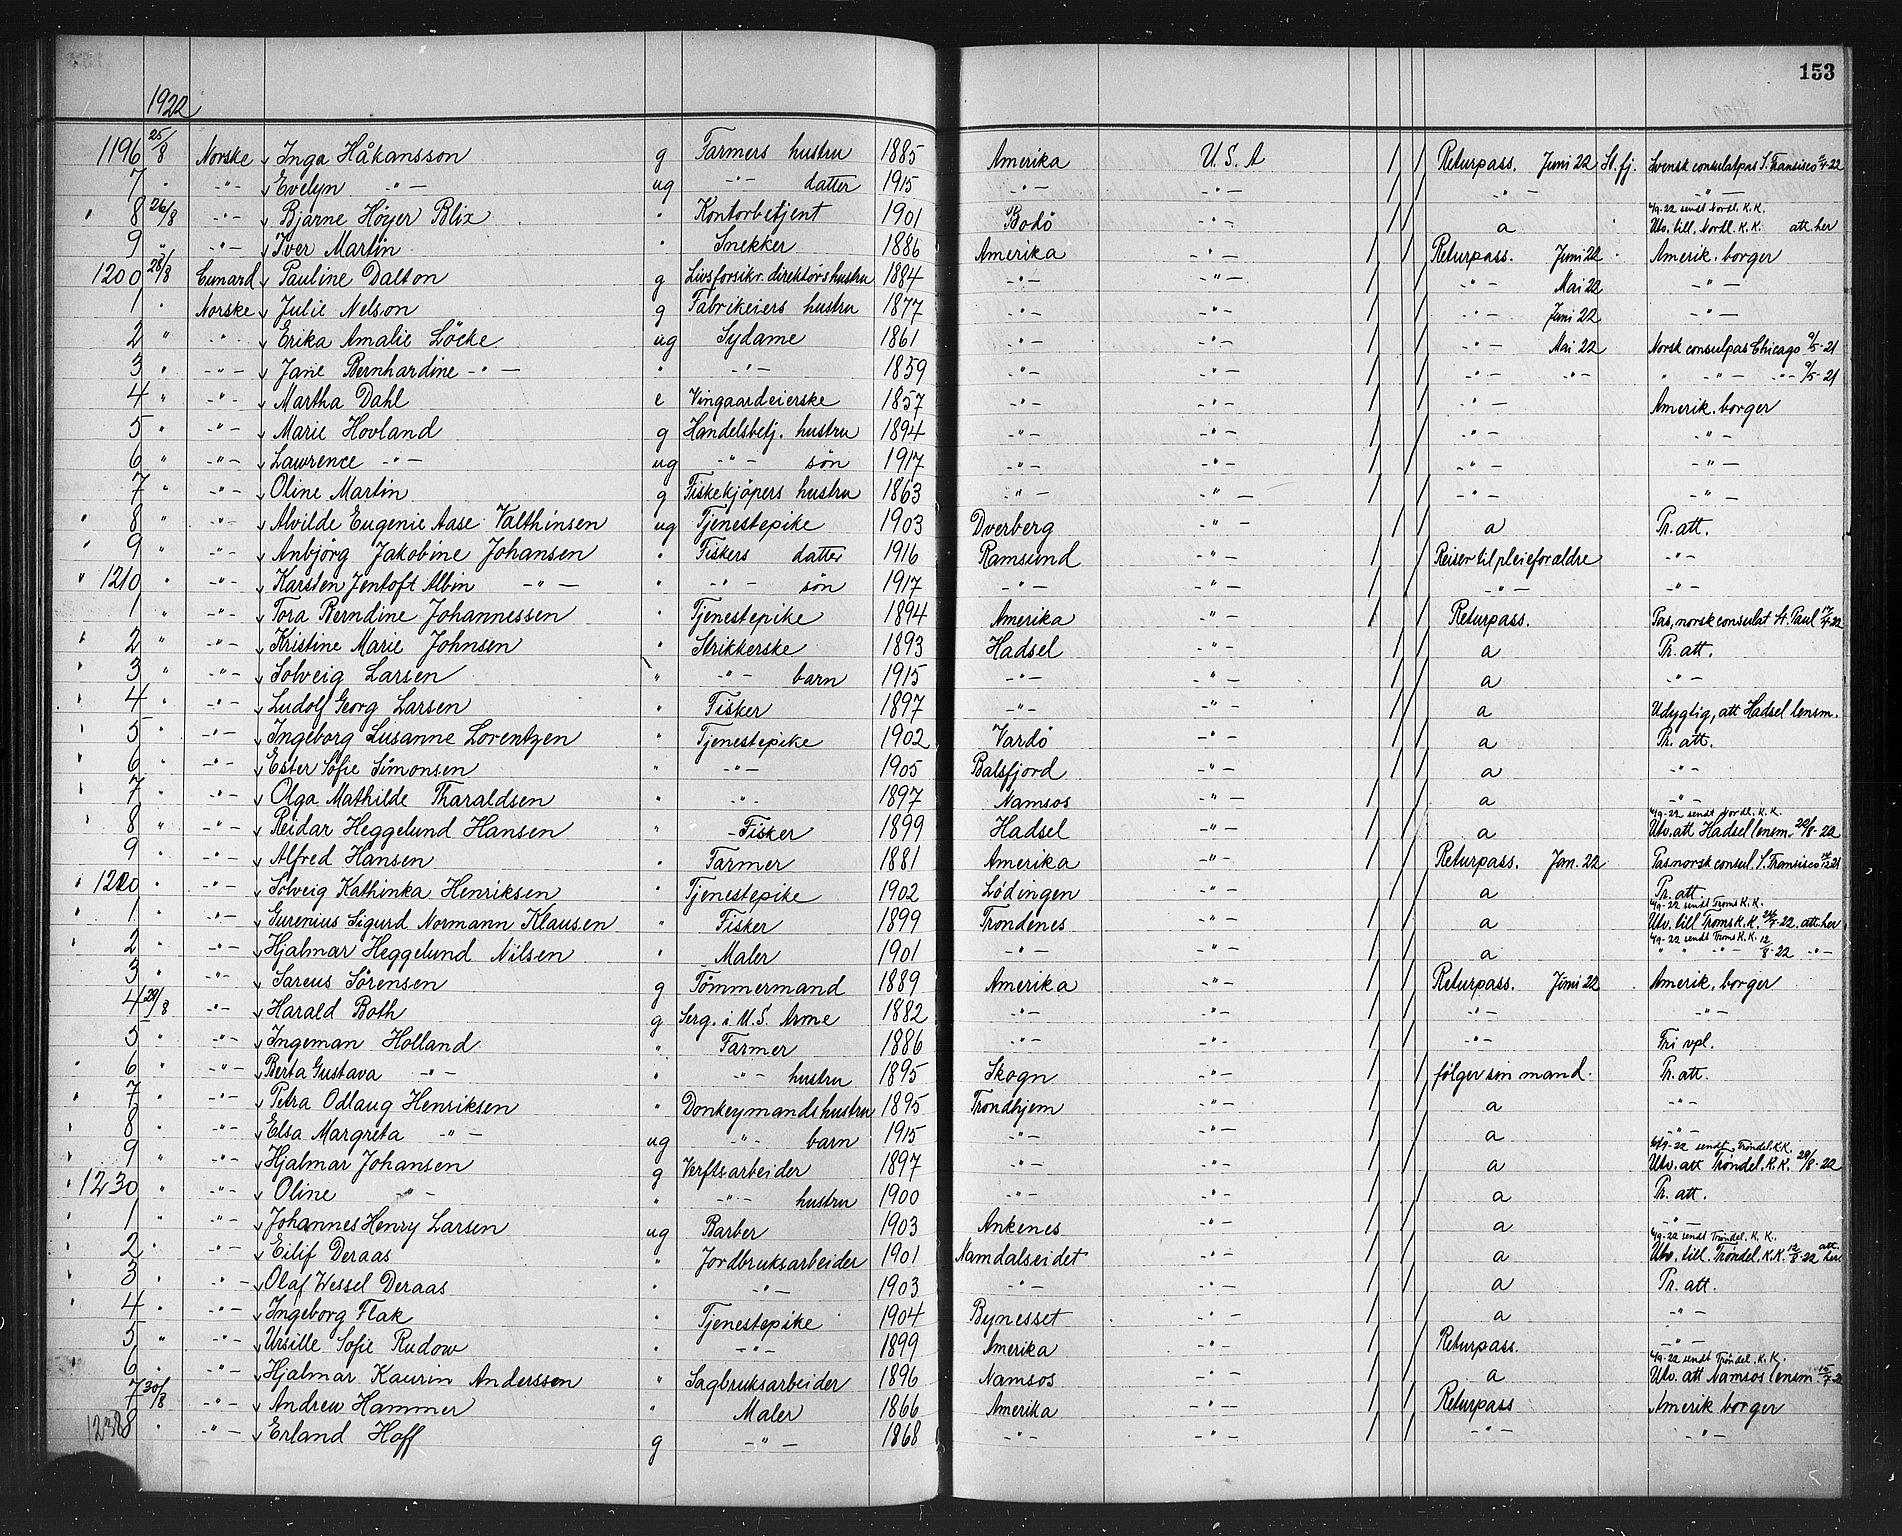 153
1922
1196 25/8 Norske Inga Håkansson g Farmers hustru 1885 Amerika U.S.A Returpass. Juni 22 St. fj. Svensk consulatpas S. Fransisco
7 " -"- Evelyn -"- ug -"- datter 1915 -"- -"- -"- -"-
8 26/8 -"- Bjarne Höyer Blix " Kontorbetjent 1901 Bodö -"- a 4/9-22 sendt Nordl. K.K. Utv. till. Nordl. K.K. att. her
9 " -"- Iver Martin " Snekker 1886 Amerika -"- Returpass. Juni 22 Amerik. borger
1200 28/8 Cunard Pauline Dalton g Livsforsikr. direktörs hustru 1884 -"- -"- -"- Mai 22 -"-
1 " Norske Julie Nelson g Fabrikeiers hustru 1877 -"- -"- -"- Juni 22 -"-
2 " -"- Erika Amalie Löcke ug Sydame 1861 -"- -"- -"- Mai 22 Norsk consulpas Chicago 9/5-21
3 " -"- Jane Bernhardine -"- " -"- 1859 -"- -"- -"- -"- " -"- -"- 9/5-21
4 " -"- Martha Dahl e Vingaardeierske 1857 -"- -"- -"- Amerik. borger
5 " -"- Marie Hovland g Handelsbetj. hustru 1894 -"- -"- -"- -"-
6 " -"- Lawrence -"- ug -"- sön 1917 -"- -"- -"- -"-
7 " -"- Oline Martin g Fiskekjöpers hustru 1863 -"- -"- -"- -"-
8 " -"- Alvilde Eugenie Aase Valthinsen ug Tjenestepike 1903 Dverberg -"- a Pr. att.
9 " -"- Anbjörg Jakobine Johansen " Fiskers datter 1916 Ramsund -"- Reiser til pleieforældre -"-
1210 " -"- Karsten Jentoft Albin -"- " -"- sön 1917 -"- -"- -"- -"-
1 " -"- Tora Berndine Johannessen " Tjenestepike 1894 Amerika -"- Returpass. Pas, norsk consulat St. Paul
2 " -"- Kristine Marie Johnsen " Strikkerske 1893 Hadsel -"- a Pr. att.
3 " -"- Solveig Larsen " -"- barn 1915 -"- -"- a -"-
4 " -"- Ludolf Georg Larsen " Fisker 1897 -"- -"- a Udygtig, att Hadsel lensm.
5 " -"- Ingeborg Susanne Lorentzen " Tjenestepike 1902 Vardö -"- a Pr. att.
6 " -"- Ester Sofie Simonsen " -"- 1905 Balsfjord -"- a -"-
7 " -"- Olga Mathilde Tharaldsen " -"- 1897 Namsos -"- a -"-
8 " -"- Reidar Heggelund Hansen " Fisker 1899 Hadsel -"- a 4/9-22 sendt Nordl. K.K. Utv. att Hadsel lensm. 22/8-22
9 " -"- Alfred Hansen " Farmer 1881 Amerika -"- Returpass. Jan. 22 Pas norsk consul. S. Fransisco
1220 " -"- Solveig Kathinka Henriksen " Tjenestepike 1902 Lödingen -"- a Pr. att.
1 " -"- Gurenius Sigurd Normann Klausen " Fisker 1899 Trondenes -"- a 4/9-22 sendt Troms K.K. Utv. till Troms K.K. 24/7-22. att. her
2 " -"- Hjalmar Heggelund Nilsen " Maler 1901 -"- -"- a 4/9-22 sendt Troms K.K. " " -"- 12/8-22 -"-
3 " -"- Sareus Sörensen g Tömmermand 1889 Amerika -"- Returpass. Juni 22 Amerik. borger
4 29/8 -"- Harald Both g Serg. i U.S. Arme 1882 -"- -"- -"- -"-
5 " -"- Ingeman Holland " Farmer 1886 -"- -"- -"- Fri vpl.
6 " -"- Berta Gustava -"- " -"- hustru 1895 Skogn -"- fölger sin mand. Pr. att.
7 " -"- Petra Odlaug Henriksen " Donkeymands hustru 1895 Trondhjem -"- a -"-
8 " -"- Elsa Margreta -"- ug -"- barn 1915 -"- -"- a -"-
9 " -"- Hjalmar Johansen g Verftsarbeider 1897 -"- -"- a 4/9-22 sendt Tröndel. K.K. Utv. att Tröndel. K.K. 29/8-22
1230 " -"- Oline -"- " -"- hustru 1900 -"- -"- a Pr. att.
1 " -"- Johannes Henry Larsen ug Barber 1903 Ankenes -"- a -"-
2 " -"- Eilif Deraas " Jordbruksarbeider 1901 Namdalseidet -"- a 4/9-22 sendt Tröndel. K.K. Utv. till. Tröndel. K.K. 12/8-22 att. her.
3 " -"- Olaf Wessel Deraas " -"- 1903 -"- -"- a Pr. att.
4 " -"- Ingeborg Flak " Tjenestepike 1904 Bynesset -"- a -"-
5 " -"- Ursille Sofie Rudow " -"- 1899 Amerika -"- Returpass. -"-
6 " -"- Hjalmar Kaurin Anderssen " Sagbruksarbeider 1896 Namsos -"- a 4/9-22 sendt Tröndel. K.K. Utv. att Namsos lensm
7 30/8 -"- Andrew Hammer " Maler 1866 Amerika -"- Returpass Amerik borger
1238 " -"- Erland Hoff g -"- 1868 -"- -"- -"- -"-